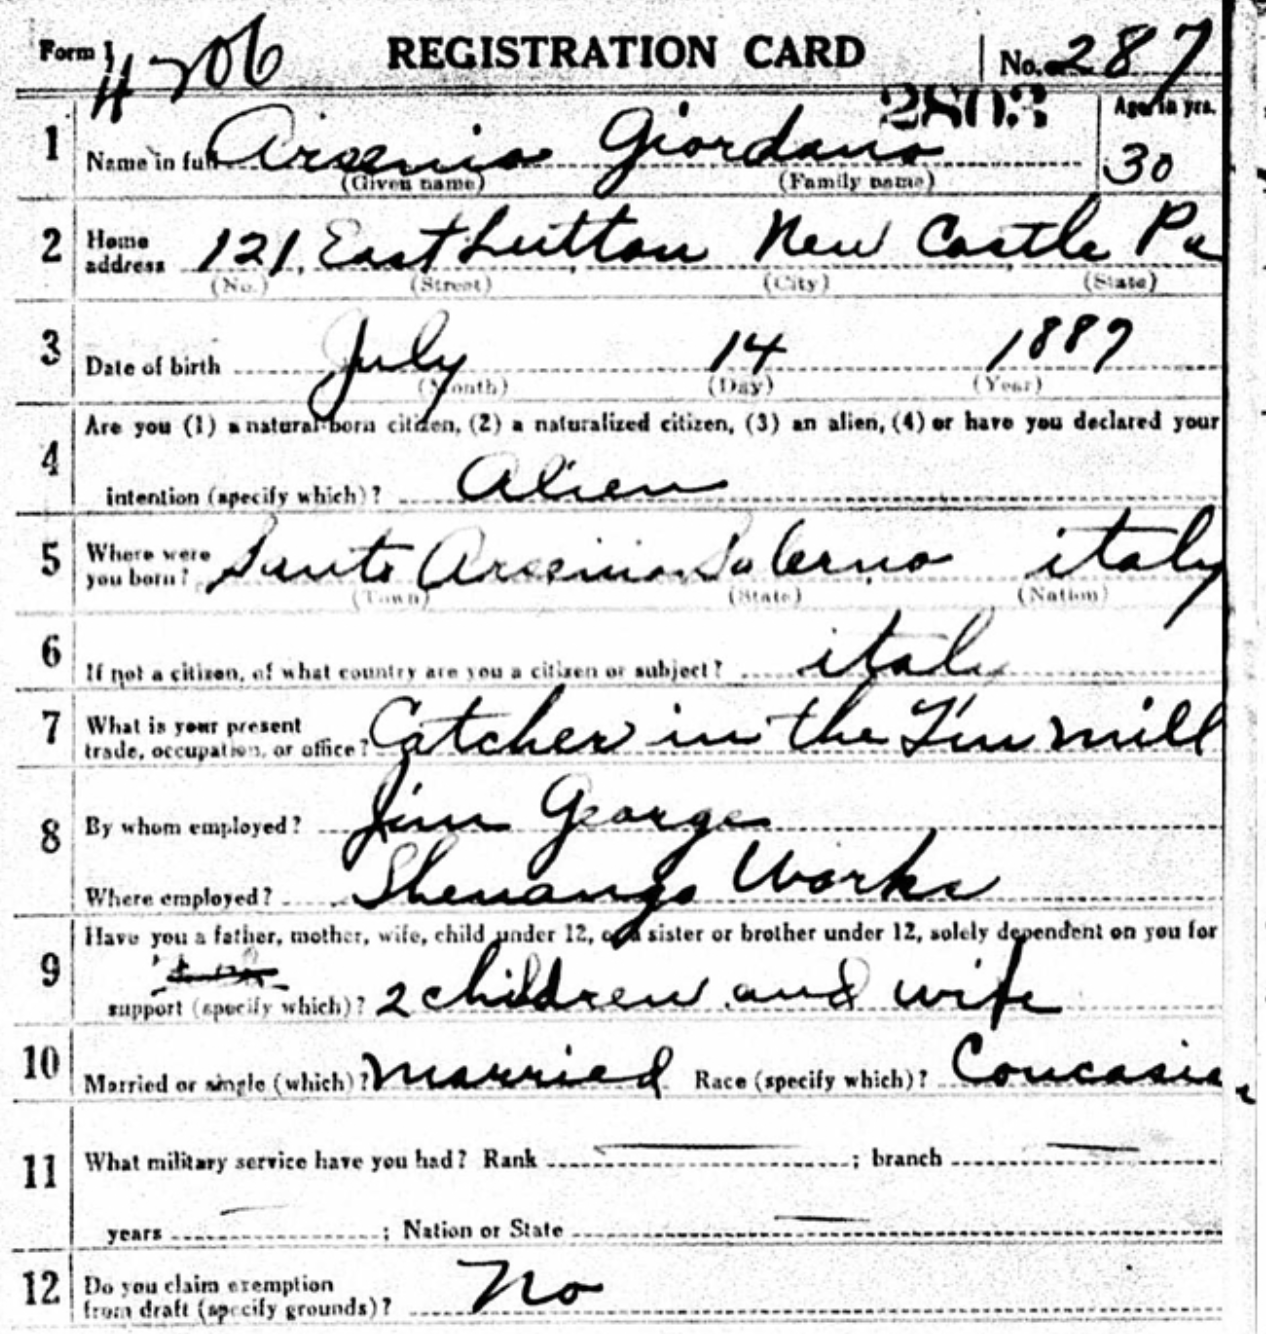 Form 1 4706 REGISTRATION CARD No. 287
2803 Age, in yrs.
1 Name in full Arsenio Giordano 30
(Given name) (Family name)
2 Home address 121 East Lutton New Castle Pa
(No.) (Street) (City) (State)
3 Date of birth July 14 1887
(Month) (Day) (Year)
4 Are you (1) a natural-born citizen, (2) a naturalized citizen, (3) an alien, (4) or have you declared your
intention (specify which)? Alien
5 Where were you born? Santo Arsenio Salerno italy
(Town) (State) (Nation)
6 If not a citizen, of what country are you a citizen or subject? italy
7 What is your present trade, occupation, or office? Catcher in the Tin mill
8 By whom employed? Jim George
Where employed? Shenango Works
9 Have you a father, mother, wife, child under 12, or a sister or brother under 12, solely dependent on you for
support (specify which)? 2 children and wife
10 Married or single (which)? married Race (specify which)? Coucasian
11 What military service have you had? Rank ; branch
years ; Nation or State
12 Do you claim exemption from draft (specify grounds)? No